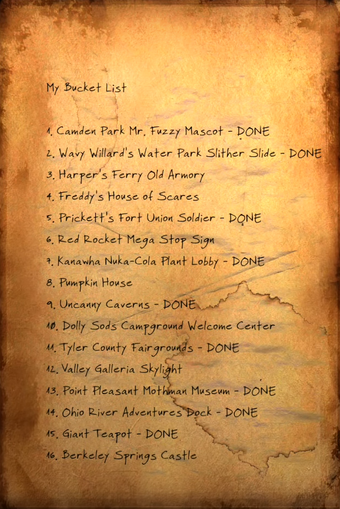 My Bucket List
1. Camden Park Mr. Fuzzy Mascot - DONE
2. Wavy Willard's Water Park Slither Slide - DONE
3. Harper's Ferry Old Armory
4. Freddy's House of Scares
5. Prickett's Fort Union Soldier - DONE
6. Red Rocket Mega Stop Sign
7. Kanawha Nuka-Cola Plant Lobby - DONE
8. Pumpkin House
9. Uncanny Caverns - DONE
10. Dolly Sods Campground Welcome Center
11. Tyler County Fairgrounds - DONE
12. Valley Galleria Skylight
13. Point Pleasant Mothman Museum - DONE
14. Ohio River Adventures Dock - DONE
15. Giant Teapot - DONE
16. Berkeley Springs Castle